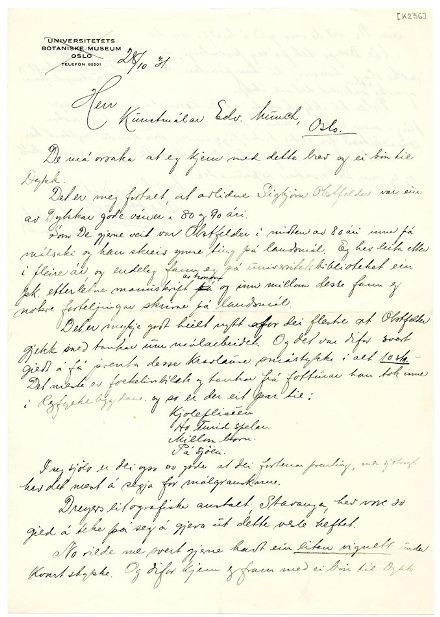 [K236]
UNIVERSITETETS
BOTANISKE MUSEUM
OSLO
TELEFON 82501
28/10 31
Herr
Kunstmålar Edv. Munch,
Oslo.
De må orsaka at eg kjem med dette brev og ei bön til
Dykk.
Det er meg fortalt, at avlidne Sigbjörn Obstfelder var ein
av Dykkar gode vener i 80 og 90 åri.
Som De gjerne veit var Obstfelder i midten av 80 åri inne på
målsaki og han skreiv ymse ting på landsmål. Eg hev leita etter
i fleire år, og endeleg fann eg på universitetsbiblioteket ein
pk. etterlatne manuskript og innimillom desse fann eg
nokre forteljingar skrivne på landsmål.
Det er mykje godt heilt nytt for dei fleste at Obstfelder
gjekk med tankar um målarbeidet. Og det var difor svært
gildt å få prenta desse småstykke i alt 10 stk.
Det meste er og tankar frå fotturar han tok inne
i Ryfylkebygdane, og so er der eit par til:
Kjolefliseen
Ho Turid spelar
Millom Norn
På sjöen
I seg sjölv er dei gode at dei fortener prenting, men
hev det mest å segja for målgranskarne.
Dreyers litografiske anstalt, Stavanger, hev vore so
gild å take på seg å gjeva ut dette vesle heftet.
No vilde me svært gjerne havt ein liten vignett under
kvart stykke. Og difor kjem eg fram med ei bön til Dykk